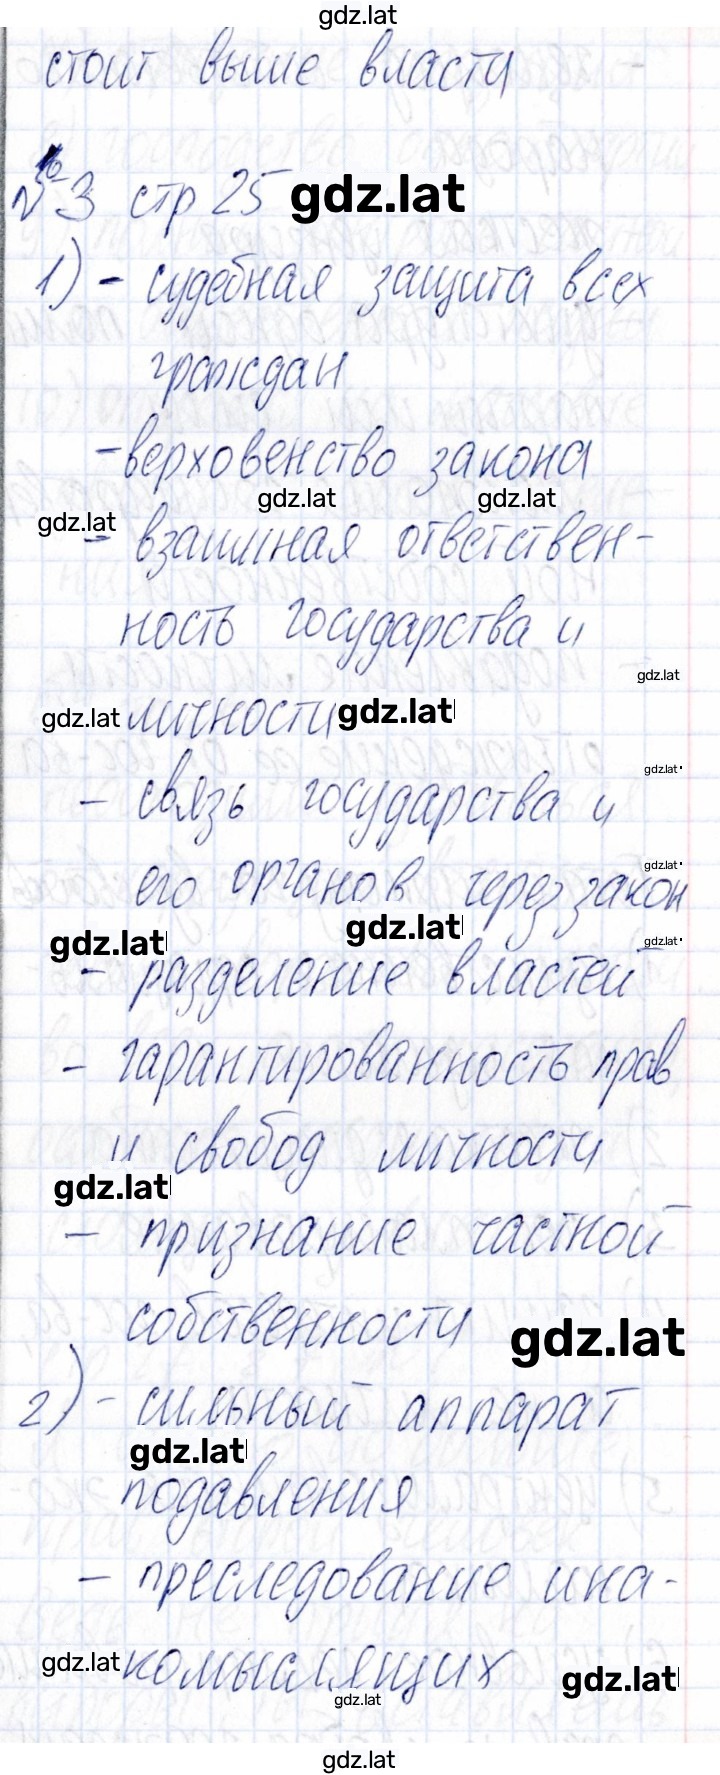 gdz.lat
стоит выше власти
№3 стр 25 gdz.lat
1) - судебная защита всех
граждан
- верховенство закона
gdz.lat gdz.lat
gdz.lat
- взаимная ответствен-
ность государства и
gdz.lat
gdz.lat личности gdz.lat
gdz.lat
- связь государства и
gdz.lat
его органов через закон
gdz.lat gdz.lat gdz.lat
- разделение властей
- гарантированность прав
и свобод личности
gdz.lat
- признание частной
собственности gdz.lat
2) - сильный аппарат
gdz.lat
подавления
- преследование ина-
gdz.lat комыслящих gdz.lat
gdz.lat
gdz.lat